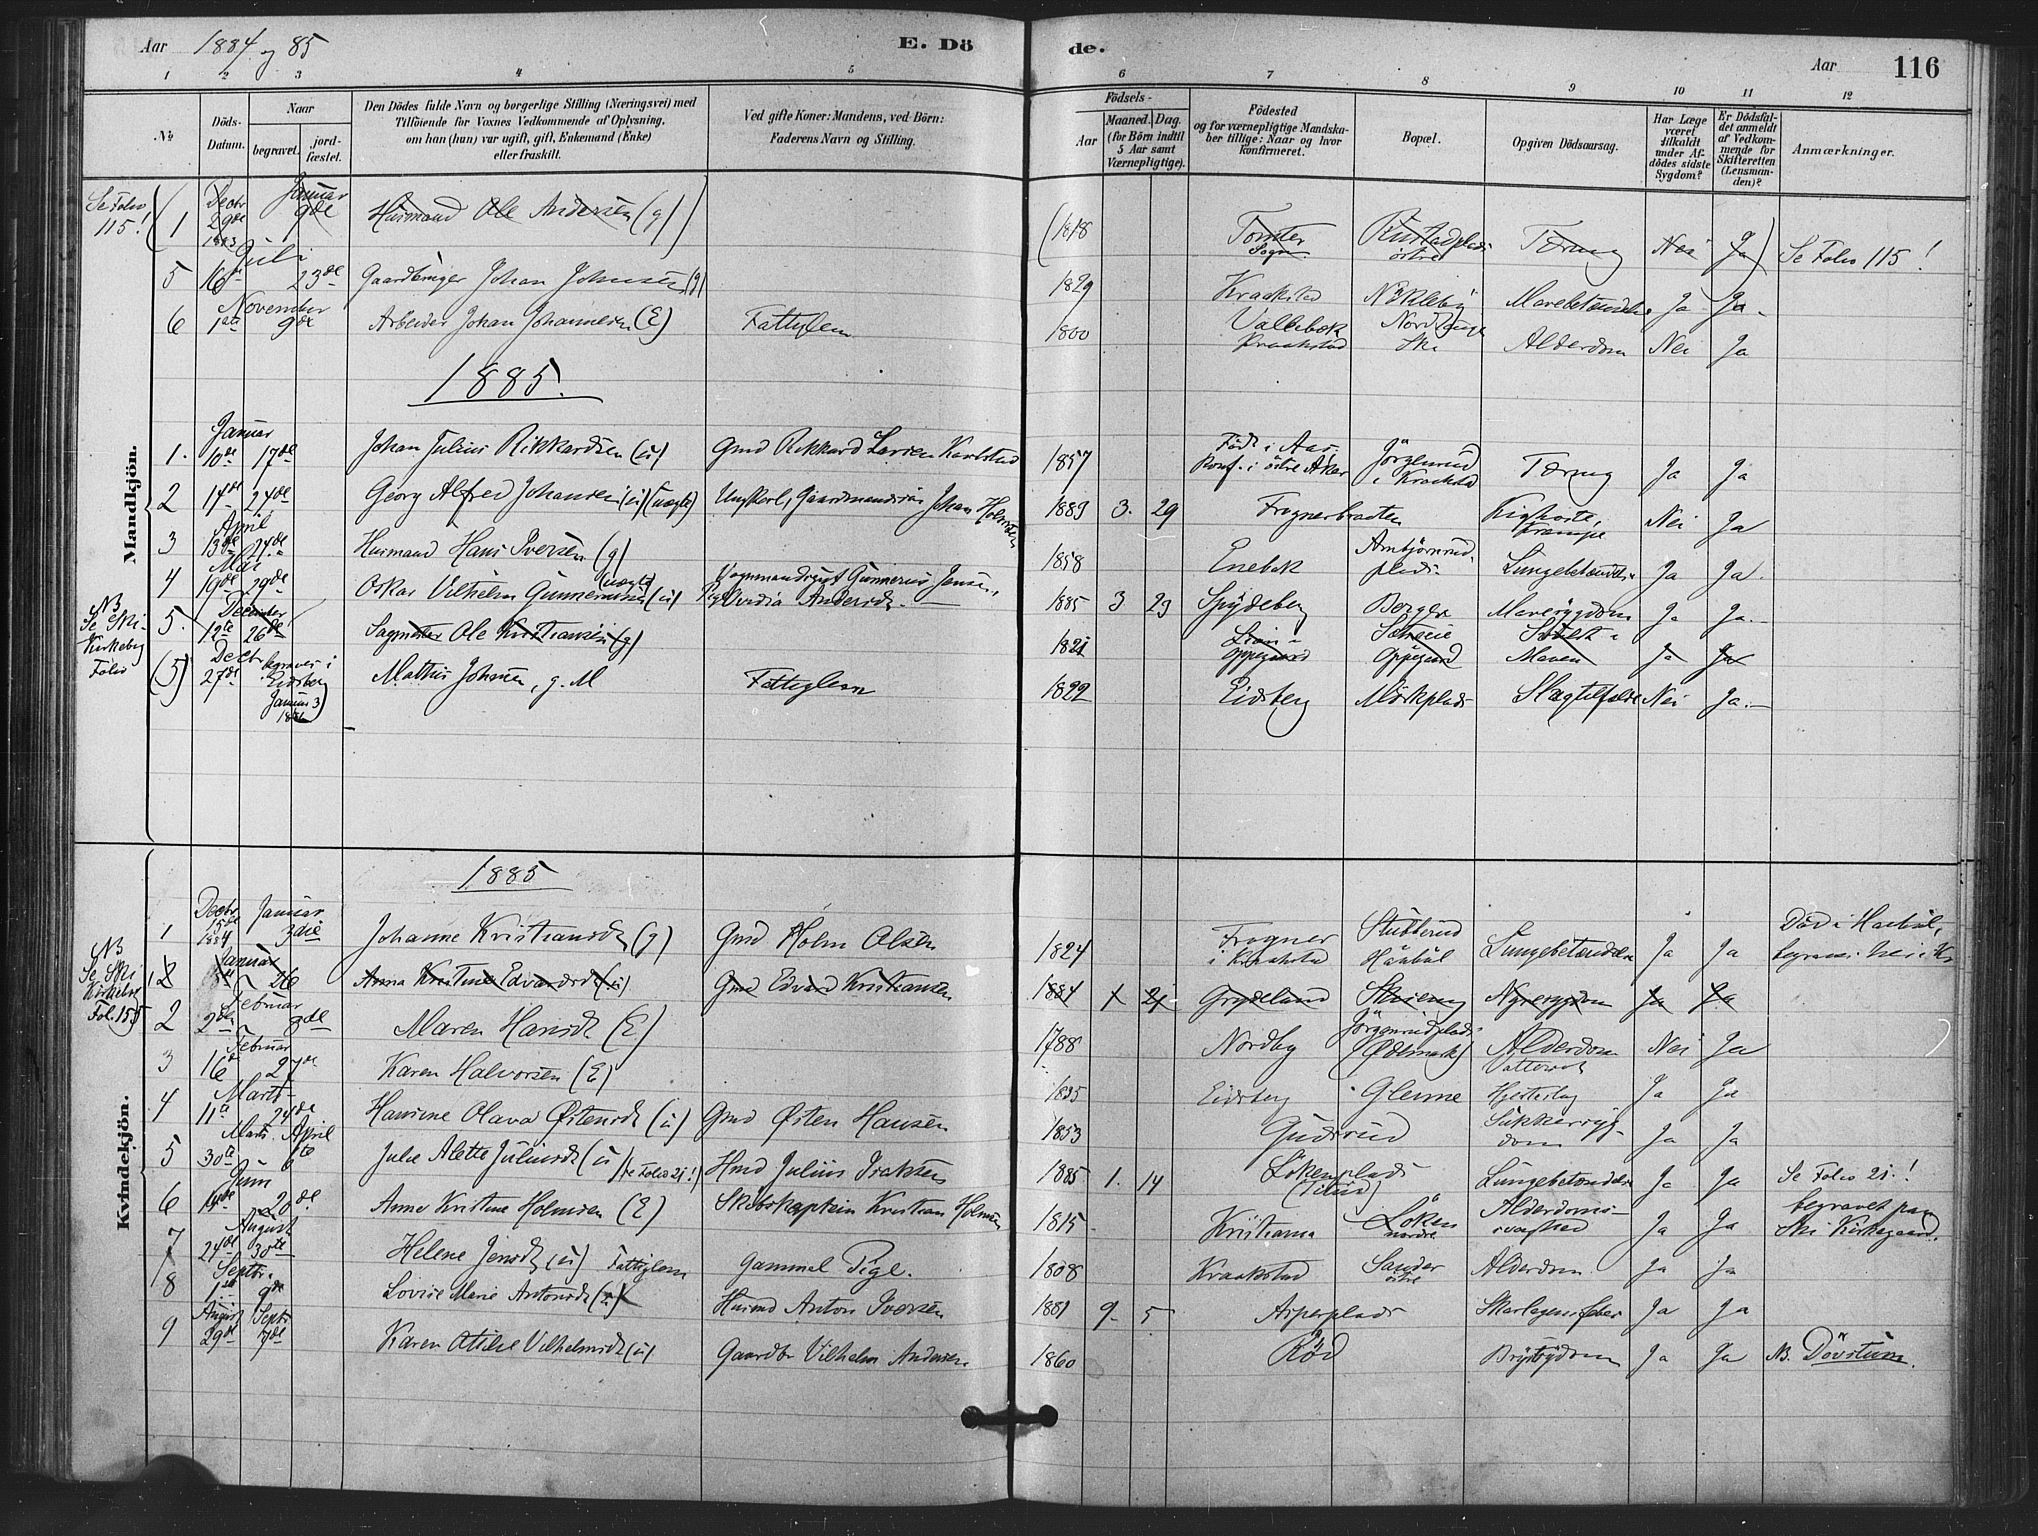 Aar 1884 og 85
E. Dö de.
Aar 116
1 2 3 4 5 6 7 8 9 10 11 12
№
Döds-Datum.
Naar
begravet.
jord-fæstet.
Den Dödes fulde Navn og borgerlige Stilling (Næringsvei) med
Tilföiende for Voxnes Vedkommende af Oplysning,
om han (hun) var ugift, gift, Enkemand (Enke)
eller fraskilt.
Ved gifte Koner: Mandens, ved Börn:
Faderens Navn og Stilling.
Födsels-
Aar
Maaned. Dag.
(for Börn indtil
5 Aar samt
Værnepligtige).
Födested
og for værnepligtige Mandska-
ber tillige: Naar og hvor
konfirmeret.
Bopæl.
Opgiven Dödsaarsag.
Har Læge
været
tilkaldt
under Af-
dödes sidste
Sygdom?
Er Dödsfal-
det anmeldt
af Vedkom-
mende for
Skifteretten
(Lensman-
den)?
Anmærkninger.
Mandkjön.
Se Folio 115! (1 Decbr 29de 1883 Januar 9de Husmand Ole Andersen (g)) (1818 Tomter Sogn Rustadplads östre Tæring Nei Ja) Se Folio 115!
5 Juli 16de 23de Gaardbruger Johan Johnsen (g) 1829 Kraakstad Nökleby Mavebetændelse Ja Ja
6 November 1ste 9de Arbeider Johan Johannesen (E) Fattiglem 1800 Kraakstad Ski Alderdom Nei Ja
1885.
1. Januar 10de 17de Johan Julius Rikkardsen (u) Gmd Rikkard Larsen Karlstad 1857 Födt i Aas, Konf. i östre Aker Jörgenrud i Kraakstad Tæring Ja Ja
2 14de 24de Georg Alfred Johansen (u) (uægte) Ungkarl, Gaardmandssön Johan 1883 3. 29 Frognerbraaten Kighoste, Krampe Nei Ja
3 April 13de 27de Husmand Hans Iversen (g) 1858 Enebak Arnbjörnrud-plads Lungebetændelse Ja Ja
4 Mai 19de 29de Oskar Vilhelm Gunneriussen (u) (uægte) Gunnerius Jensen, Andersdt. 1885 3 23 Spydeberg Berger Mavesygdom Ja Ja
5. December 12te 26de Sagmester Ole Kristiansen (g) 1821 Oppegaard Oppegaard Maven Ja Ja
NB Se Ski Kirkebog Folio
(5) Decbr 27de begravet i Eidsberg Januar 3 Mathis Johnsen, g. M Fattiglem 1822 Eidsberg Mörkplads Slagtilfælde Nei Ja
Kvindekjön.
1885
1 Decbr 15de 1884 Januar 3die Johanne Kristiansdt (g) Gmd Holm Olsen 1824 Frogner i Kraakstad Stubberud Haaböl Lungebetændelse Ja Ja Död i Haaböl, begravet her i K.
NB Se Ski Kirkebog Fol. 155
2 Januar Anna Kristine Edvardsdt (u) Gmd Edvard Kristiansen 1884 1 21 Grydeland Skeieng Nyresygdom Ja Ja
2 Februar 2den 8de Maren Hansdt (E) 1788 Nordby Jörgenrudplads (Ödemark) Alderdom Nei Ja
3 Februar 16de 27de Karen Halvorsen (E) 1825 Eidsberg Glenne Vattersot Ja Ja
4 Marts 11te 24de Hansine Olava Østensdt (u) Gmd Østen Hansen 1853 Gudrud Sukkersyg-dom Ja Ja
5 Marts 30te April 6te Julie Alette Juliusdt (u) (se Folio 21!) Hmd Julius Isaksen 1885 1. 14 Lökenplads Lungebetændelse Ja Ja Se Folio 21!
6 Juni 14de 20de Anne Kristine Holmsen (E) Skibskaptein Kristian Holmsen 1815 Kristiania Löken nordre Alderdoms-svaghed Ja Ja begravet paa Ski Kirkegaard.
7 August 24de 30te Helene Jensdt (u) Fattiglem Gammel Pige. 1808 Kraakstad Sander östre Alderdom Ja Ja
8 Septbr. 1ste 9de Lovise Marie Antonsdt (u) Husmd Anton Iversen 1881 9 5 Asperplads Skarlagensfeber Ja Ja
9 August 29de Septbr 7de Karen Otilie Vilhelmsdt (u) Gaardbr Vilhelm Andersen 1860 Röd Brystsygdom Ja Ja NB. Dövstum.